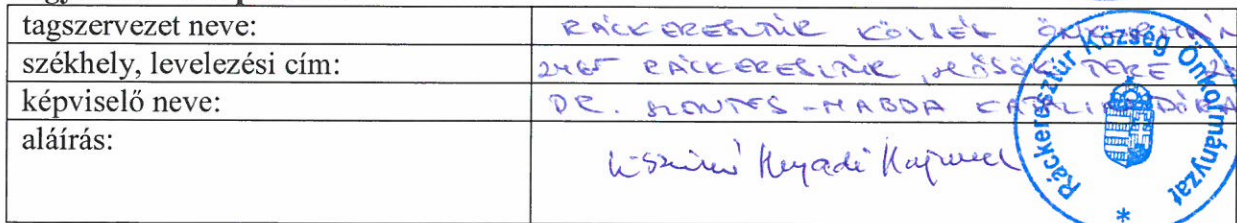 tagszervezet neve: RÁCKERESZTÚR KÖZSÉG ÖNKORMÁN
székhely, levelezési cím: 2465 RÁCKERESZTÚR, HŐSÖK TERE
képviselő neve: DR. KATALIN DÓRA
aláírás:
Ráckeresztúr Község Önkormányzat
*